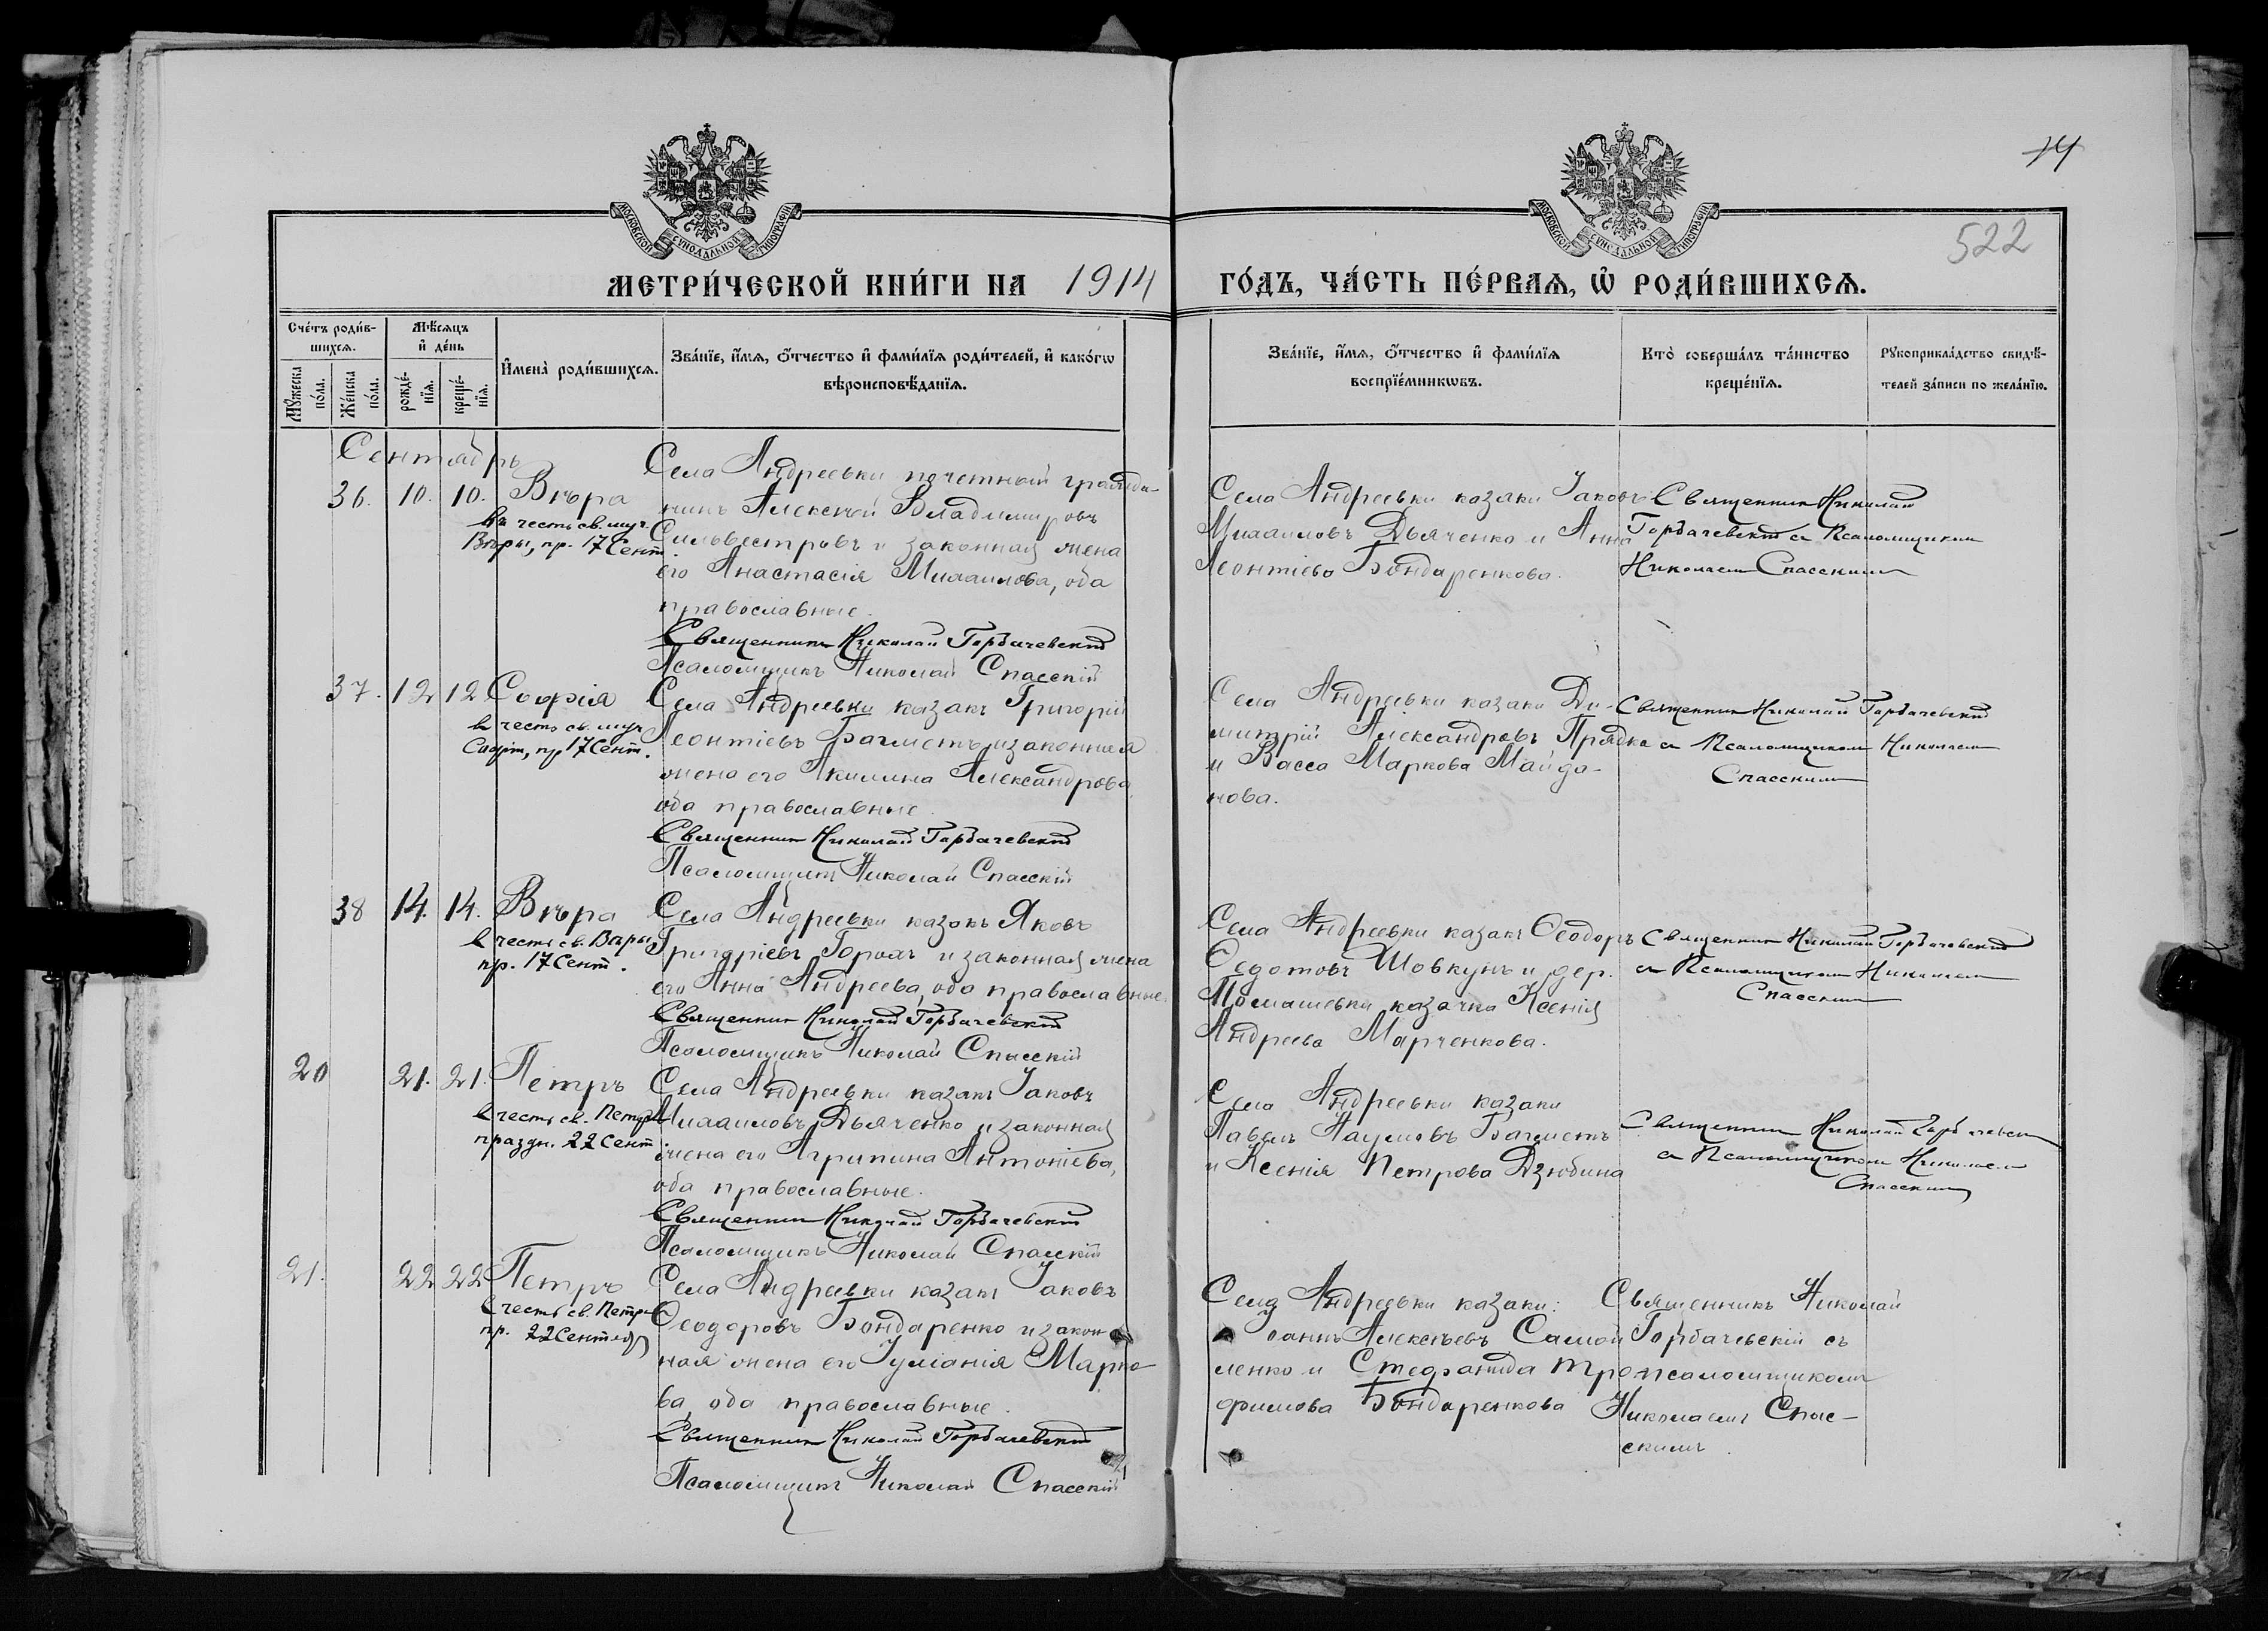 14
522
МОСКОВСКОЙ СУНОДАЛЬНОЙ ТИПОГРАФІИ
МОСКОВСКОЙ СУНОДАЛЬНОЙ ТИПОГРАФІИ
МЕТРИ́ЧЕСКОЙ КНИ́ГИ НА 1914 ГО́ДЪ, ЧА́СТЬ ПЕ́РВАѦ, Ѡ҆ РОДИ́ВШИХСѦ.
Сче́тъ роди́в-
шихсѧ.
Мꙋжеска по́ла.
Же́нска по́ла.
Мѣ́сѧцъ
и҆ де́нь
рожде́-
нїѧ.
креще́-
нїѧ.
И҆мена̀ роди́вшихсѧ.
Зва́нїе, и҆́мѧ, ѻ҆́тчество и҆ фами́лїѧ роди́телей, и҆ како́гѡ
вѣроисповѣ́данїѧ.
Зва́нїе, и҆́мѧ, ѻ҆́тчество и҆ фами́лїѧ
воспрїе́мникѡвъ.
Кто̀ соверша́лъ та́инство
креще́нїѧ.
Рꙋкоприкла́дство свидѣ́-
телей за́писи по жела́нїю.
Сентябрь
36. 10. 10. Вѣра
въ честь св. муч.
Вѣры, пр. 17 Сент.
Села Андреевки почетный гражда-
нинъ Алексѣй Владимировъ
Сильвестровъ и законная жена
его Анастасія Михаилова, оба
православные.
Священникъ Николай Горбачевскій
Псаломщикъ Николай Спасскій
Села Андреевки казаки Іаковъ
Михаиловъ Дьяченко и Анна
Леонтіева Бондаренкова.
Священникъ Николай
Горбачевскій съ Псаломщикомъ
Николаемъ Спасскимъ
37. 12 12 Софія
въ честь св. муч.
Софіи, пр 17 Сент.
Села Андреевки казакъ Григорій
Леонтіевъ Багметъ и законная
жена его Акилина Александрова,
оба православные.
Священникъ Николай Горбачевскій
Псаломщикъ Николай Спасскій
Села Андреевки казаки Ди-
митрій Александровъ Прядка
и Васса Маркова Майда-
нова.
Священникъ Николай Горбачевскій
съ Псаломщикомъ Николаемъ
Спасскимъ
38 14. 14. Вѣра
въ честь св. Вѣры,
пр. 17 Сент.
Села Андреевки казакъ Яковъ
Григоріевъ и законная жена
его Анна Андреева, оба православные.
Священникъ Николай Горбачевскій
Псаломщикъ Николай Спасскій
Села Андреевки казакъ Ѳеодоръ
Ѳедотовъ Шовкунъ и дер.
казачка Ксенія
Андреева Марченкова.
Священникъ Николай Горбачевскій
съ Псаломщикомъ Николаемъ
Спасскимъ
20 21. 21. Петръ
въ честь св. Петра
праздн. 22 Сент.
Села Андреевки казакъ Іаковъ
Михаиловъ Дьяченко и законная
жена его Агрипина Антоніева,
оба православные.
Священникъ Николай Горбачевскій
Псаломщикъ Николай Спасскій
Села Андреевки казаки
Павелъ Наумовъ Багметъ
и Ксенія Петрова Дзюбина
Священникъ Николай Горбачевскій
съ Псаломщикомъ Николаемъ
Спасскимъ
21. 22 22 Петръ
въ честь св. Петра
пр. 22 Сентября
Села Андреевки казакъ Іаковъ
Ѳеодоровъ Бондаренко и закон-
ная жена его Іуліанія Марко-
ва, оба православные.
Священникъ Николай Горбачевскій
Псаломщикъ Николай Спасскій
Села Андреевки казаки:
Іоаннъ Алексѣевъ Самой-
ленко и Стефанида Тро-
фимова Бондаренкова
Священникъ Николай
Горбачевскій съ
псаломщикомъ
Николаемъ Спас-
скимъ.